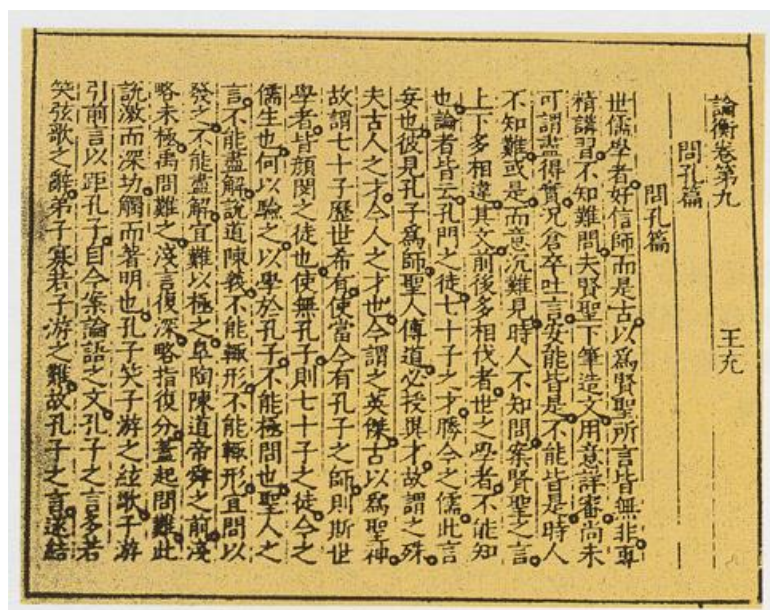 論衡卷第九 王充
問孔篇
問孔篇
世儒學者好信師而是古以爲賢聖所言皆無非專
精講習不知難問夫賢聖下筆造文用意詳審尚未
可謂盡得實況倉卒吐言安能皆是不能皆是時人
不知難或是而意沉難見時人不知問案賢聖之言
上下多相違其文前後多相伐者世之學者不能知
也論者皆云孔門之徒七十子之才勝今之儒此言
妄也彼見孔子爲師聖人傳道必授異才故謂之殊
夫古人之才今人之才也今謂之英傑古以爲聖神
故謂七十子歷世希有使當今有孔子之師則斯世
學者皆顏閔之徒也使無孔子則七十子之徒今之
儒生也何以驗之以學於孔子不能極問也聖人之
言不能盡解說道陳義不能輒形不能輒形宜問以
發之不能盡解宜難以極之皐陶陳道帝舜之前淺
略未極禹問難之淺言復深略指復分蓋起問難此
說激而深切觸而著明也孔子笑子游之絃歌子游
引前言以距孔子自今案論語之文孔子之言多若
笑弦歌之辭弟子寡若子游之難故孔子之言遂結